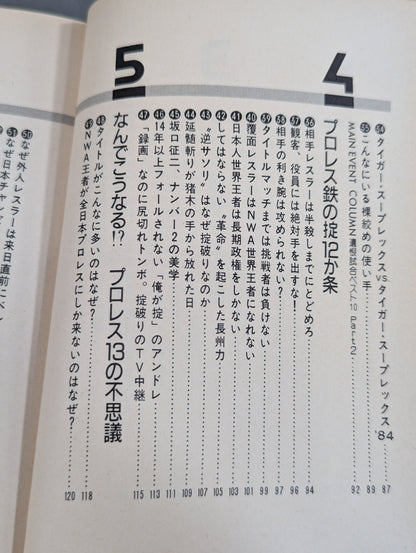 ㉞タイガー・スープレックスvs.タイガー・スープレックス'84……87
㉟こんなにいる裸絞めの使い手……89
MAIN EVENT COLUMN 遺恨試合ベスト10 Part2……92
4
プロレス鉄の掟12か条
㊱相手レスラーは半殺しまでにとどめろ……94
㊲観客、役員には絶対手を出すな!……96
㊳相手の利き腕は攻められない?……97
㊴タイトルマッチまでは挑戦者は負けない……99
㊵覆面レスラーはNWA世界王者になれない……101
㊶日本人世界王者は長期政権をしかない……103
㊷してはならない“革命”を起こした長州力……105
㊸“逆サソリ”はなぜ掟破りなのか……107
㊹延髄斬りが猪木の手から放れた日……109
㊺坂口征二、ナンバー2の美学……111
㊻14年以上フォールされない「俺が掟」のアンドレ……113
㊼「録画」なのに尻切れトンボ。掟破りのTV中継……115
5
なんでこうなる!? プロレス13の不思議
㊽タイトルがこんなに多いのはなぜ?……118
㊾NWA王者が全日本プロレスにしか来ないのはなぜ?……120
㊿なぜ外人レスラーは来日直前にベ
51なぜ日本チャンピ